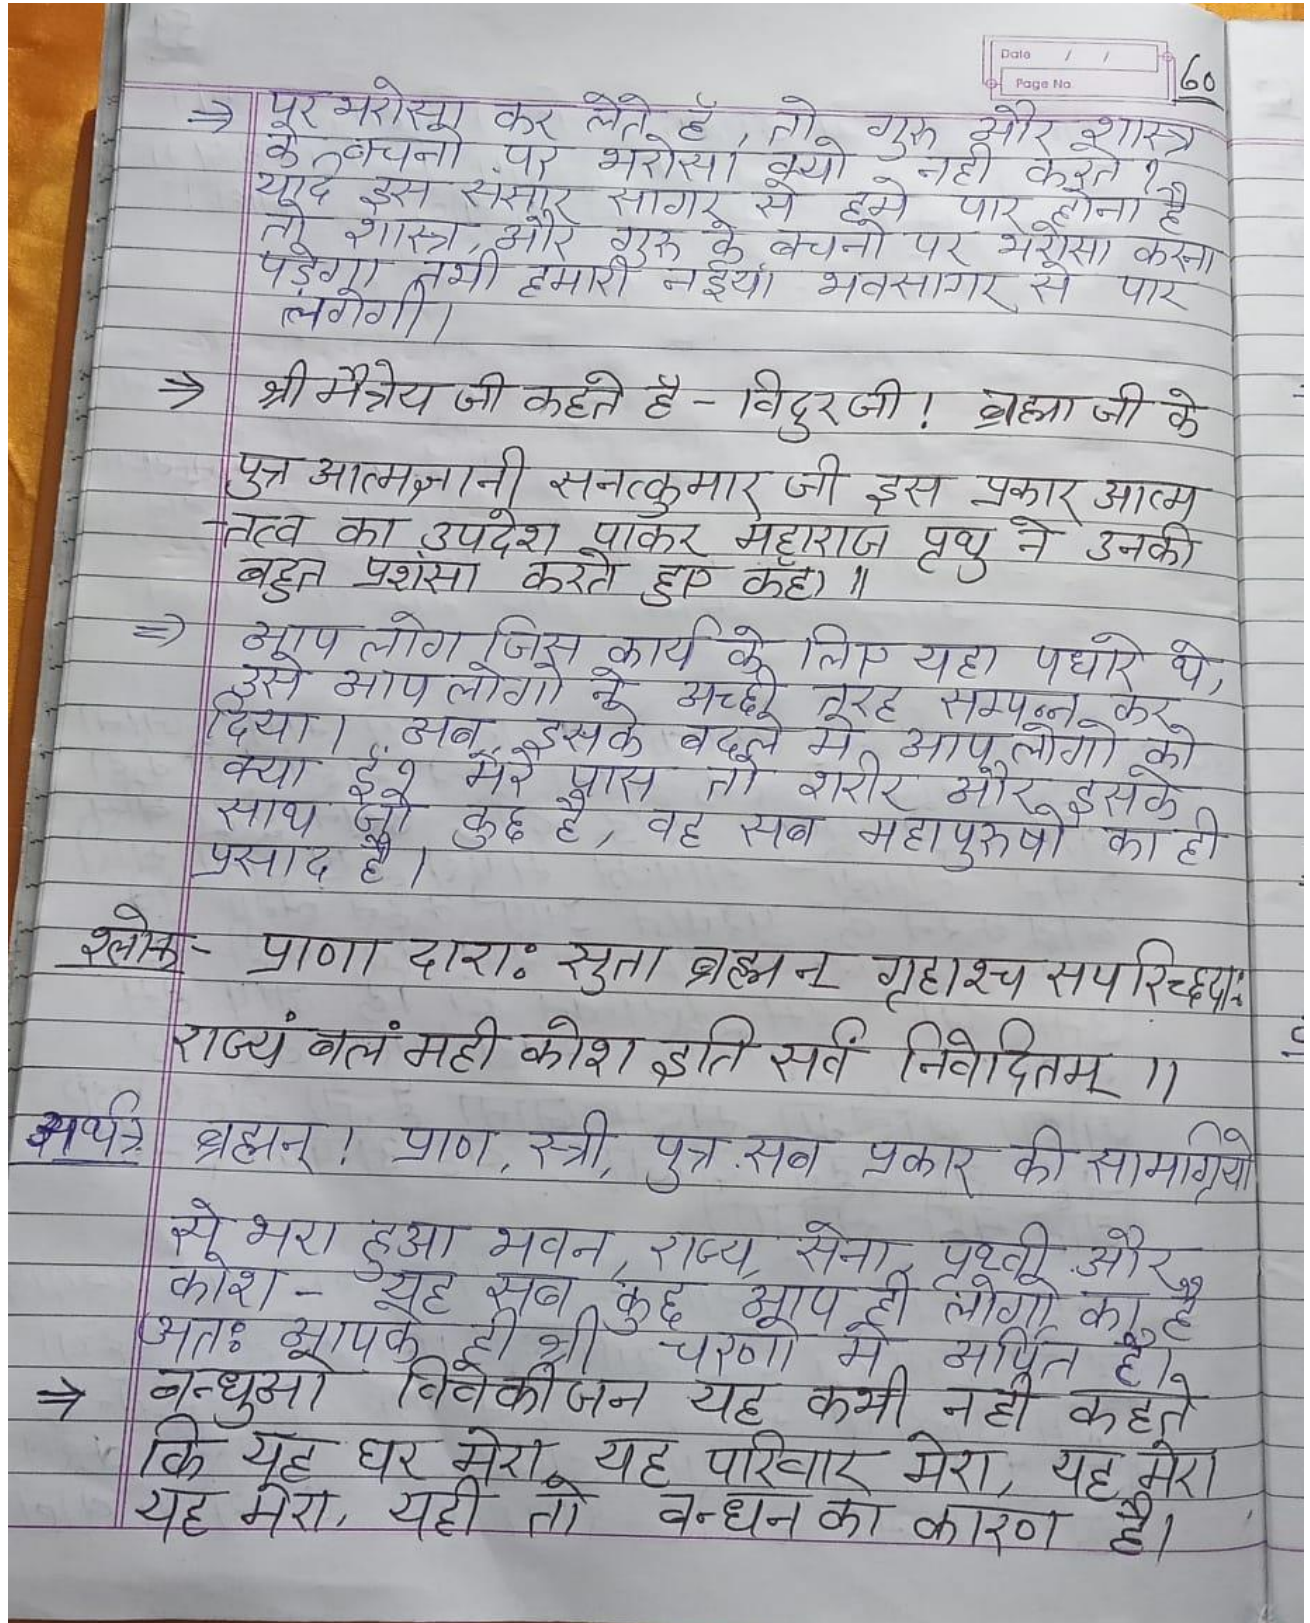 Date / /
Page No. 60
⇒ पर भरोसा कर लेते हैं, तो गुरु और शास्त्र
के वचनो पर भरोसा क्यो नही करते ?
यदि इस संसार सागर से हमे पार होना है
तो शास्त्र, और गुरु के वचनो पर भरोसा करना
पड़ेगा तभी हमारी नईया भवसागर से पार
लगेगी।
⇒ श्री मैत्रेय जी कहते है - विदुर जी ! ब्रह्मा जी के
पुत्र आत्मज्ञानी सनत्कुमार जी इस प्रकार आत्म
तत्व का उपदेश पाकर महाराज पृथु ने उनकी
बहुत प्रशंसा करते हुए कहा ॥
⇒ आप लोग जिस कार्य के लिए यहा पधारे थे,
उसे आप लोगो ने अच्छी तरह सम्पन्न कर
दिया। अब इसके बदले मे आप लोगो को
क्या दूँ ? मेरे पास तो शरीर और इसके
साथ जो कुछ है, वह सब महापुरुषो का ही
प्रसाद है।
श्लोक - प्राणा दाराः सुता ब्रह्मन् गृहाश्च सपरिच्छदाः
राज्यं बलं मही कोश इति सर्वं निवेदितम् ।।
अर्थ: ब्रह्मन् ! प्राण, स्त्री, पुत्र सब प्रकार की सामाग्रियो
से भरा हुआ भवन, राज्य, सेना, पृथ्वी और
कोश - यह सब कुछ आप ही लोगो का है
अतः आपके ही श्री चरणो मे अर्पित है।
⇒ बन्धुओ विवेकीजन यह कभी नही कहते
कि यह घर मेरा, यह परिवार मेरा, यह मेरा
यह मेरा, यही तो बन्धन का कारण है।